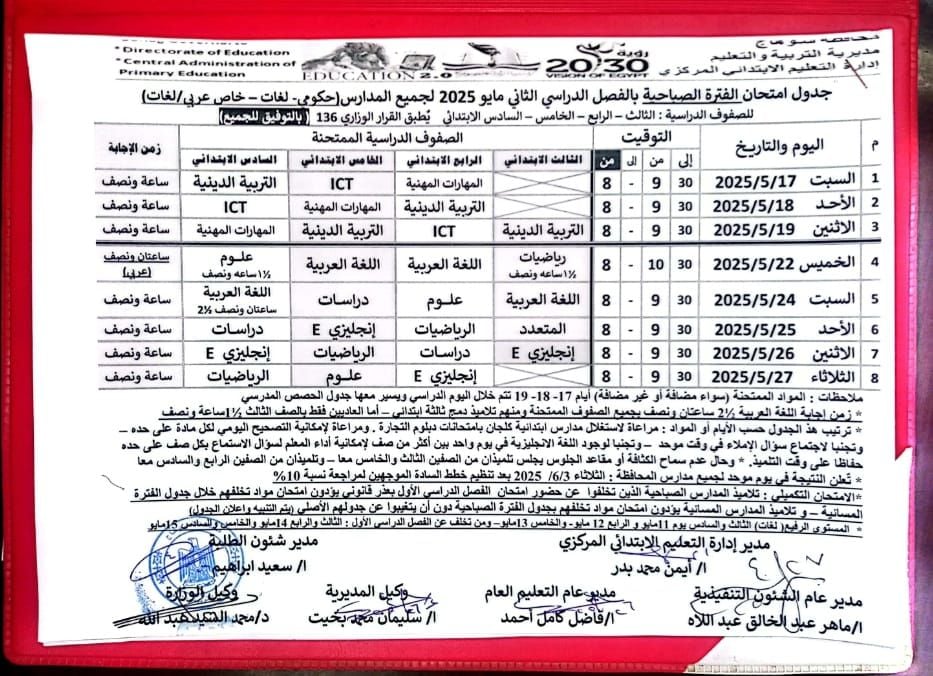 *Directorate of Education
*Central Administration of
Primary Education
EDUCATION 2.0
رؤية
2030
VISION OF EGYPT
مديرية التربية والتعليم
إدارة التعليم الابتدائي المركزي
جدول امتحان الفترة الصباحية بالفصل الدراسي الثاني مايو 2025 لجميع المدارس (حكومي- لغات – خاص عربي/لغات)
للصفوف الدراسية : الثالث – الرابع – الخامس – السادس الابتدائي يُطبق القرار الوزاري 136 (بالتوفيق للجميع)
م اليوم والتاريخ التوقيت الصفوف الدراسية الممتحنة زمن الإجابة
إلى من إلى من الثالث الابتدائي الرابع الابتدائي الخامس الابتدائي السادس الابتدائي
1 السبت 2025/5/17 30 9 - 8 المهارات المهنية ICT التربية الدينية ساعة ونصف
2 الأحد 2025/5/18 30 9 - 8 التربية الدينية المهارات المهنية ICT ساعة ونصف
3 الاثنين 2025/5/19 30 9 - 8 التربية الدينية ICT التربية الدينية المهارات المهنية ساعة ونصف
4 الخميس 2025/5/22 30 10 - 8 رياضيات ½1ساعه ونصف اللغة العربية اللغة العربية علوم ½1 ساعه ونصف ساعتان ونصف (عربي)
5 السبت 2025/5/24 30 9 - 8 اللغة العربية علوم دراسات اللغة العربية ساعتان ونصف ½2 ساعة ونصف
6 الأحد 2025/5/25 30 9 - 8 المتعدد الرياضيات إنجليزي E دراسات ساعة ونصف
7 الاثنين 2025/5/26 30 9 - 8 إنجليزي E دراسات الرياضيات إنجليزي E ساعة ونصف
8 الثلاثاء 2025/5/27 30 9 - 8 إنجليزي E علوم الرياضيات ساعة ونصف
ملاحظات : المواد الممتحنة (سواء مضافة أو غير مضافة) أيام 17- 18- 19 تتم خلال اليوم الدراسي ويسير معها جدول الحصص المدرسي
* زمن إجابة اللغة العربية ½2 ساعتان ونصف بجميع الصفوف الممتحنة ومنهم تلاميذ دمج ثالثة ابتدائي – أما العاديين فقط بالصف الثالث ½1ساعة ونصف
* ترتيب هذ الجدول حسب الأيام أو المواد : مراعاة لاستغلال مدارس ابتدائية كلجان بامتحانات دبلوم التجارة . ومراعاة لإمكانية التصحيح اليومي لكل مادة على حده –
وتجنبا لاجتماع سؤال الإملاء في وقت موحد – وتجنبا لوجود اللغة الانجليزية في يوم واحد بين أكثر من صف لإمكانية أداء المعلم لسؤال الاستماع بكل صف على حده
حفاظا على وقت التلميذ. * وحال عدم سماح الكثافة أو مقاعد الجلوس يجلس تلميذان من الصفين الثالث والخامس معا – وتلميذان من الصفين الرابع والسادس معا
* تُعلن النتيجة في يوم موحد لجميع مدارس المحافظة : الثلاثاء 6/3/ 2025 بعد تنظيم خطط السادة الموجهين لمراجعة نسبة 10%
*الامتحان التكميلي : تلاميذ المدارس الصباحية الذين تخلفوا عن حضور امتحان الفصل الدراسي الأول بعذر قانوني يؤدون امتحان مواد تخلفهم خلال جدول الفترة
المسائية – و تلاميذ المدارس المسائية يؤدون امتحان مواد تخلفهم بجدول الفترة الصباحية دون أن يتغيبوا عن جدولهم الأصلي (يتم التنبيه وإعلان الجدول)
* المستوى الرفيع( لغات) الثالث والسادس يوم 11مايو و الرابع 12 مايو- والخامس 13مايو– ومن تخلف عن الفصل الدراسي الأول : الثالث والرابع 14مايو والخامس والسادس 15مايو
مدير إدارة التعليم الابتدائي المركزي مدير شئون الطلبة
ا/ أيمن محمد بدر ا/ سعيد ابراهيم
مدير عام الشئون التنفيذية مدير عام التعليم العام وكيل المديرية وكيل الوزارة
ا/ماهر عبد الخالق عبد اللاه ا/فاضل كامل أحمد ا/ سليمان محمد بخيت د/محمد السيد عبد الله